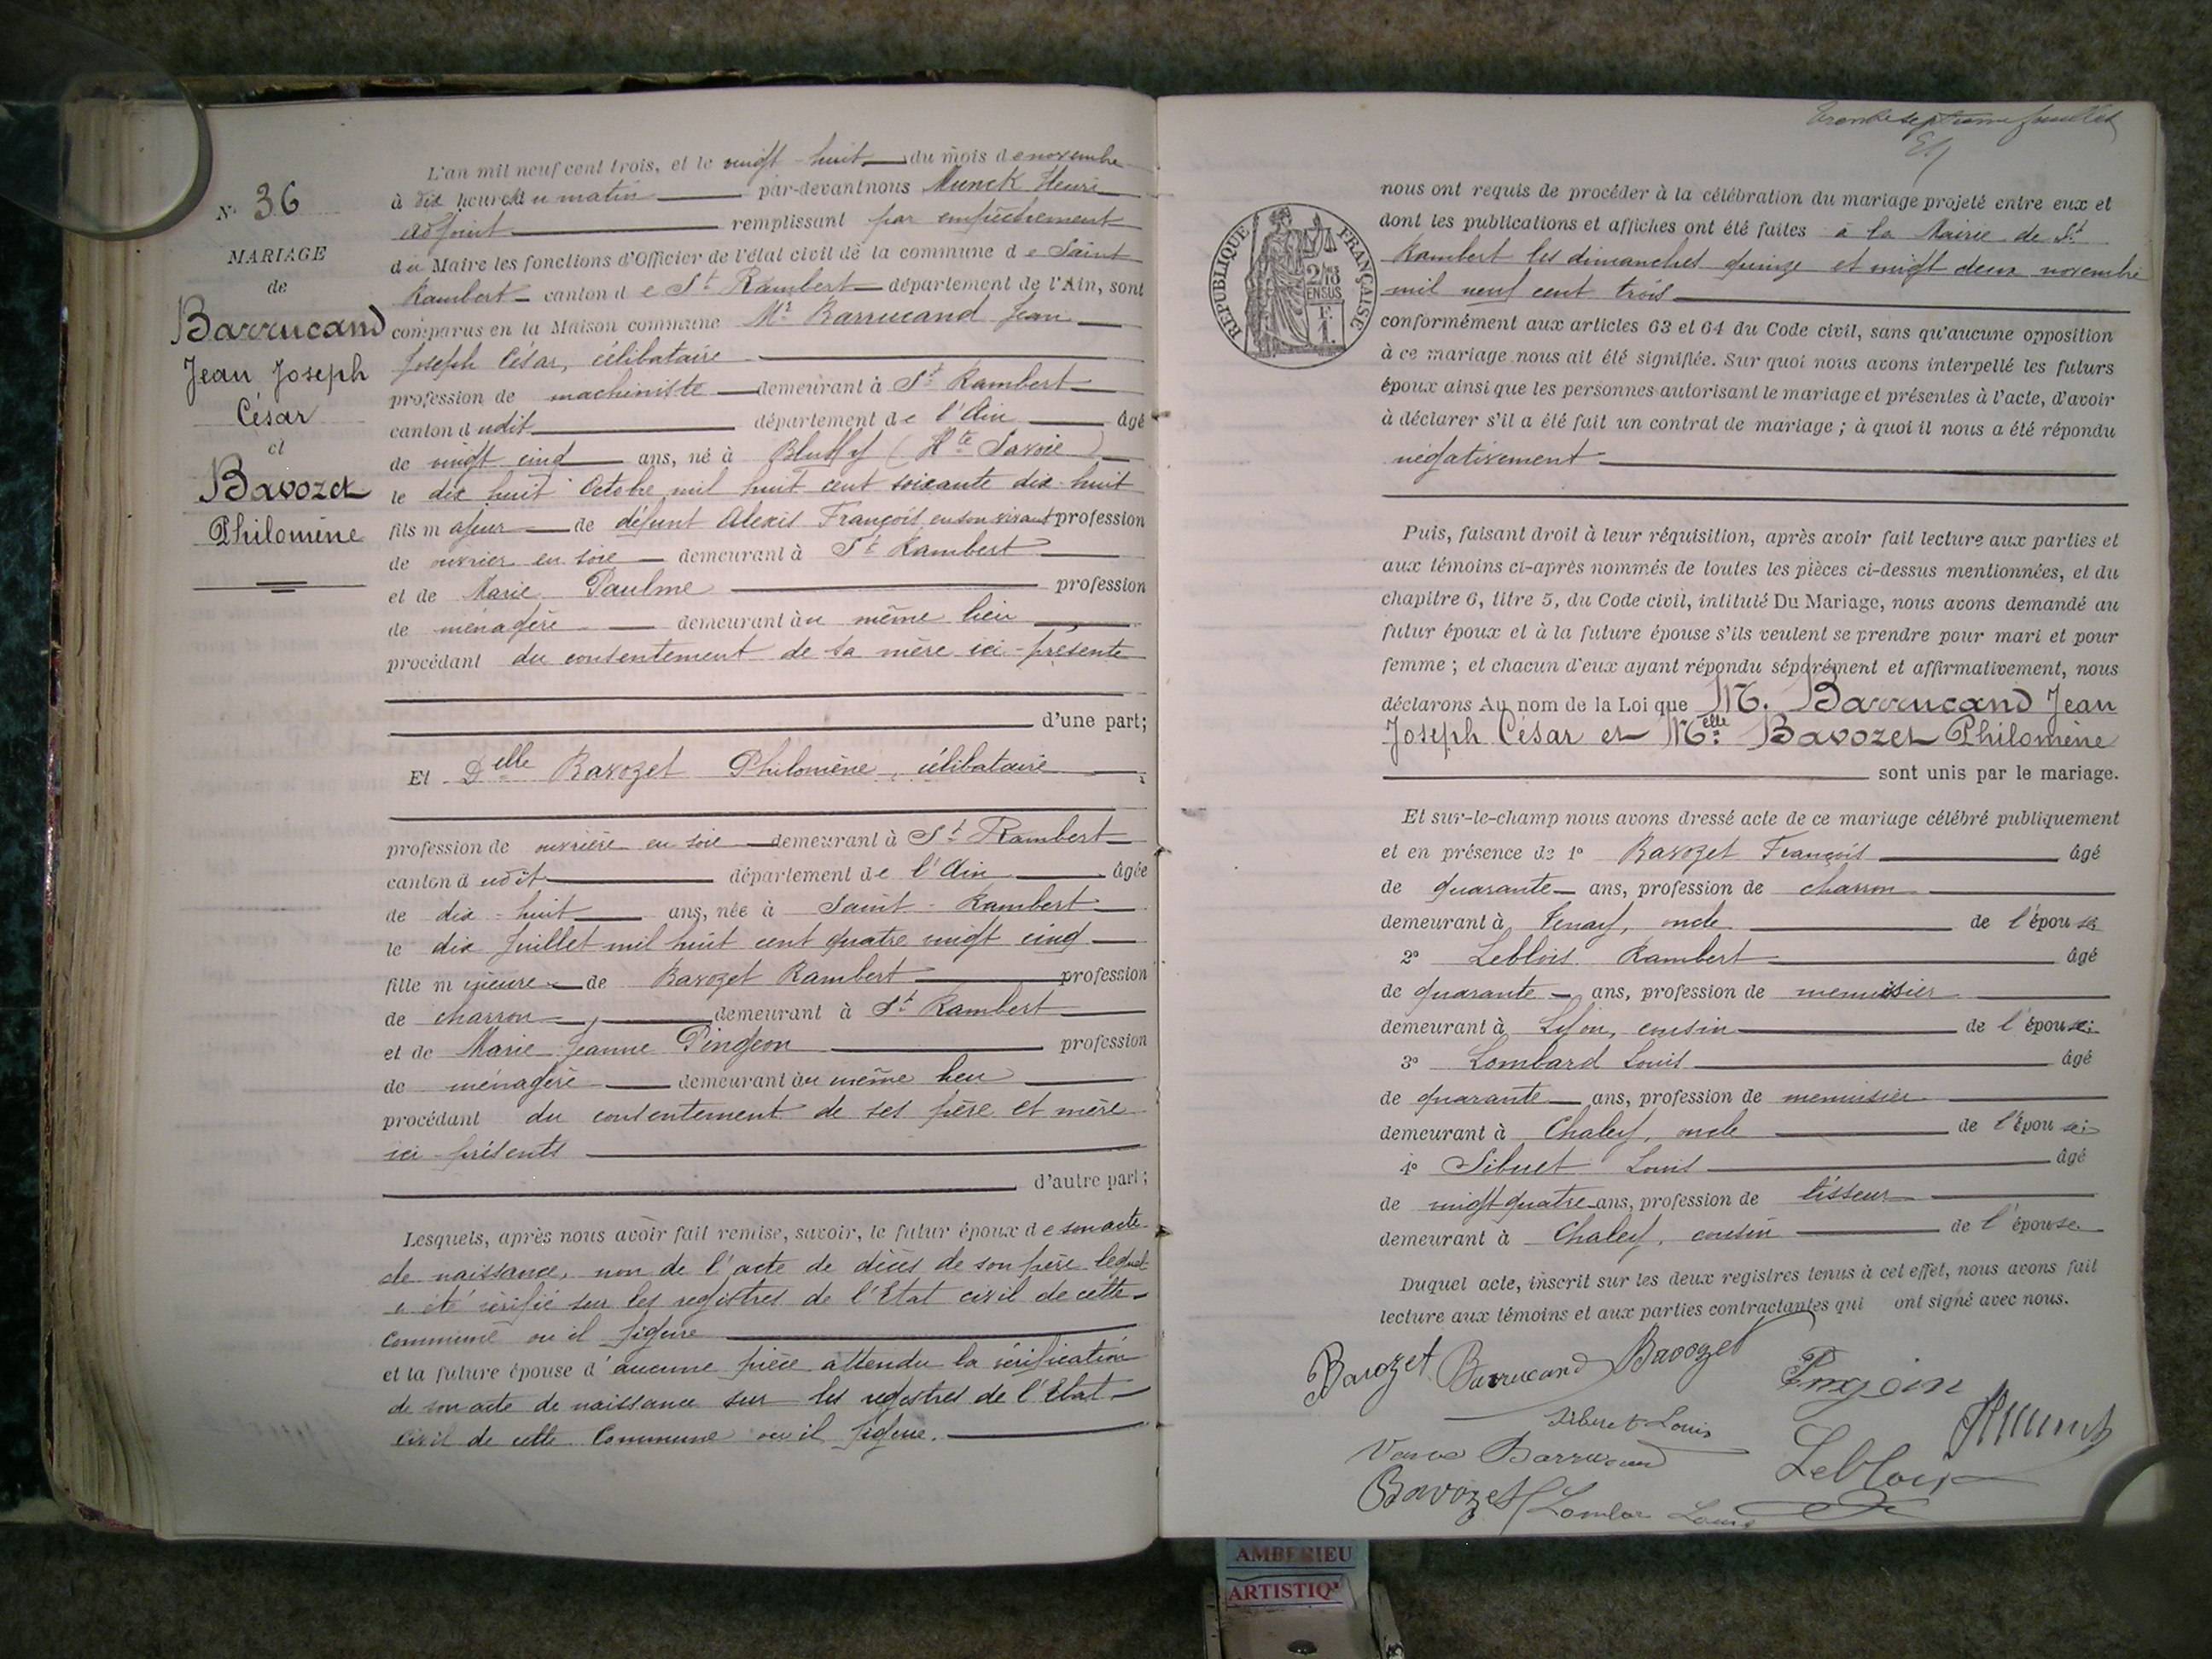 N° 36
MARIAGE
de
Barrucand
Jean Joseph
César
et
Bavozet
Philomène
L'an mil neuf cent trois, et le vingt-huit du mois de novembre
à dix heures du matin par-devant nous Munck Henri
adjoint remplissant par empêchement
du Maire les fonctions d'Officier de l'état civil de la commune de Saint
Rambert canton de St Rambert département de l'Ain, sont
comparus en la Maison commune Mr Barrucand Jean
Joseph César, célibataire
profession de machiniste demeurant à St Rambert
canton dudit département de l'Ain âgé
de vingt cinq ans, né à Bluffy (Hte Savoie)
le dix huit Octobre mil huit cent soixante dix-huit
fils majeur de défunt Alexis François, en son vivant profession
de ouvrier en soie demeurant à St Rambert
et de Marie Paulme profession
de ménagère demeurant au même lieu
procédant du consentement de sa mère ici-présente
d'une part;
Et Delle Bavozet Philomène, célibataire
profession de ouvrière en soie demeurant à St Rambert
canton dudit département de l'Ain âgée
de dix-huit ans, née à Saint-Rambert
le dix Juillet mil huit cent quatre vingt cinq
fille mineure de Bavozet Rambert profession
de charron, demeurant à St Rambert
et de Marie Jeanne Pingeon profession
de ménagère demeurant au même lieu
procédant du consentement de ses père et mère
ici-présents
d'autre part;
Lesquels, après nous avoir fait remise, savoir, le futur époux de son acte
de naissance, non de l'acte de décès de son père lequel
a été vérifié sur les registres de l'Etat civil de cette
Commune où il figure
et la future épouse d'aucune pièce attendu la vérification
de son acte de naissance sur les registres de l'Etat
Civil de cette Commune où il figure.
Trente septième feuillet
RÉPUBLIQUE FRANÇAISE
2/10es
EN SUS
F.
1.
nous ont requis de procéder à la célébration du mariage projeté entre eux et
dont les publications et affiches ont été faites à la Mairie de St
Rambert les dimanches quinze et vingt deux novembre
mil neuf cent trois
conformément aux articles 63 et 64 du Code civil, sans qu'aucune opposition
à ce mariage nous ait été signifiée. Sur quoi nous avons interpellé les futurs
époux ainsi que les personnes autorisant le mariage et présentes à l'acte, d'avoir
à déclarer s'il a été fait un contrat de mariage ; à quoi il nous a été répondu
négativement
Puis, faisant droit à leur réquisition, après avoir fait lecture aux parties et
aux témoins ci-après nommés de toutes les pièces ci-dessus mentionnées, et du
chapitre 6, titre 5, du Code civil, intitulé Du Mariage, nous avons demandé au
futur époux et à la future épouse s'ils veulent se prendre pour mari et pour
femme ; et chacun d'eux ayant répondu séparément et affirmativement, nous
déclarons Au nom de la Loi que M. Barrucand Jean
Joseph César et Melle Bavozet Philomène
sont unis par le mariage.
Et sur-le-champ nous avons dressé acte de ce mariage célébré publiquement
et en présence de 1° Bavozet François âgé
de quarante ans, profession de charron
demeurant à Tenay, oncle de l'épouse
2° Leblois Rambert âgé
de quarante ans, profession de menuisier
demeurant à Lyon, cousin de l'épouse;
3° Lombard Louis âgé
de quarante ans, profession de menuisier
demeurant à Chaley, oncle de l'épouse;
4° Sibuet Louis âgé
de vingt quatre ans, profession de tisseur
demeurant à Chaley, cousin de l'épouse
Duquel acte, inscrit sur les deux registres tenus à cet effet, nous avons fait
lecture aux témoins et aux parties contractantes qui ont signé avec nous.
Bavozet Barrucand Bavozet Pingeon
Sibuet Louis HMunck
Veuve Barrucand Leblois
Bavozet Lombar Louis
AMBERIEU
ARTISTIQ'